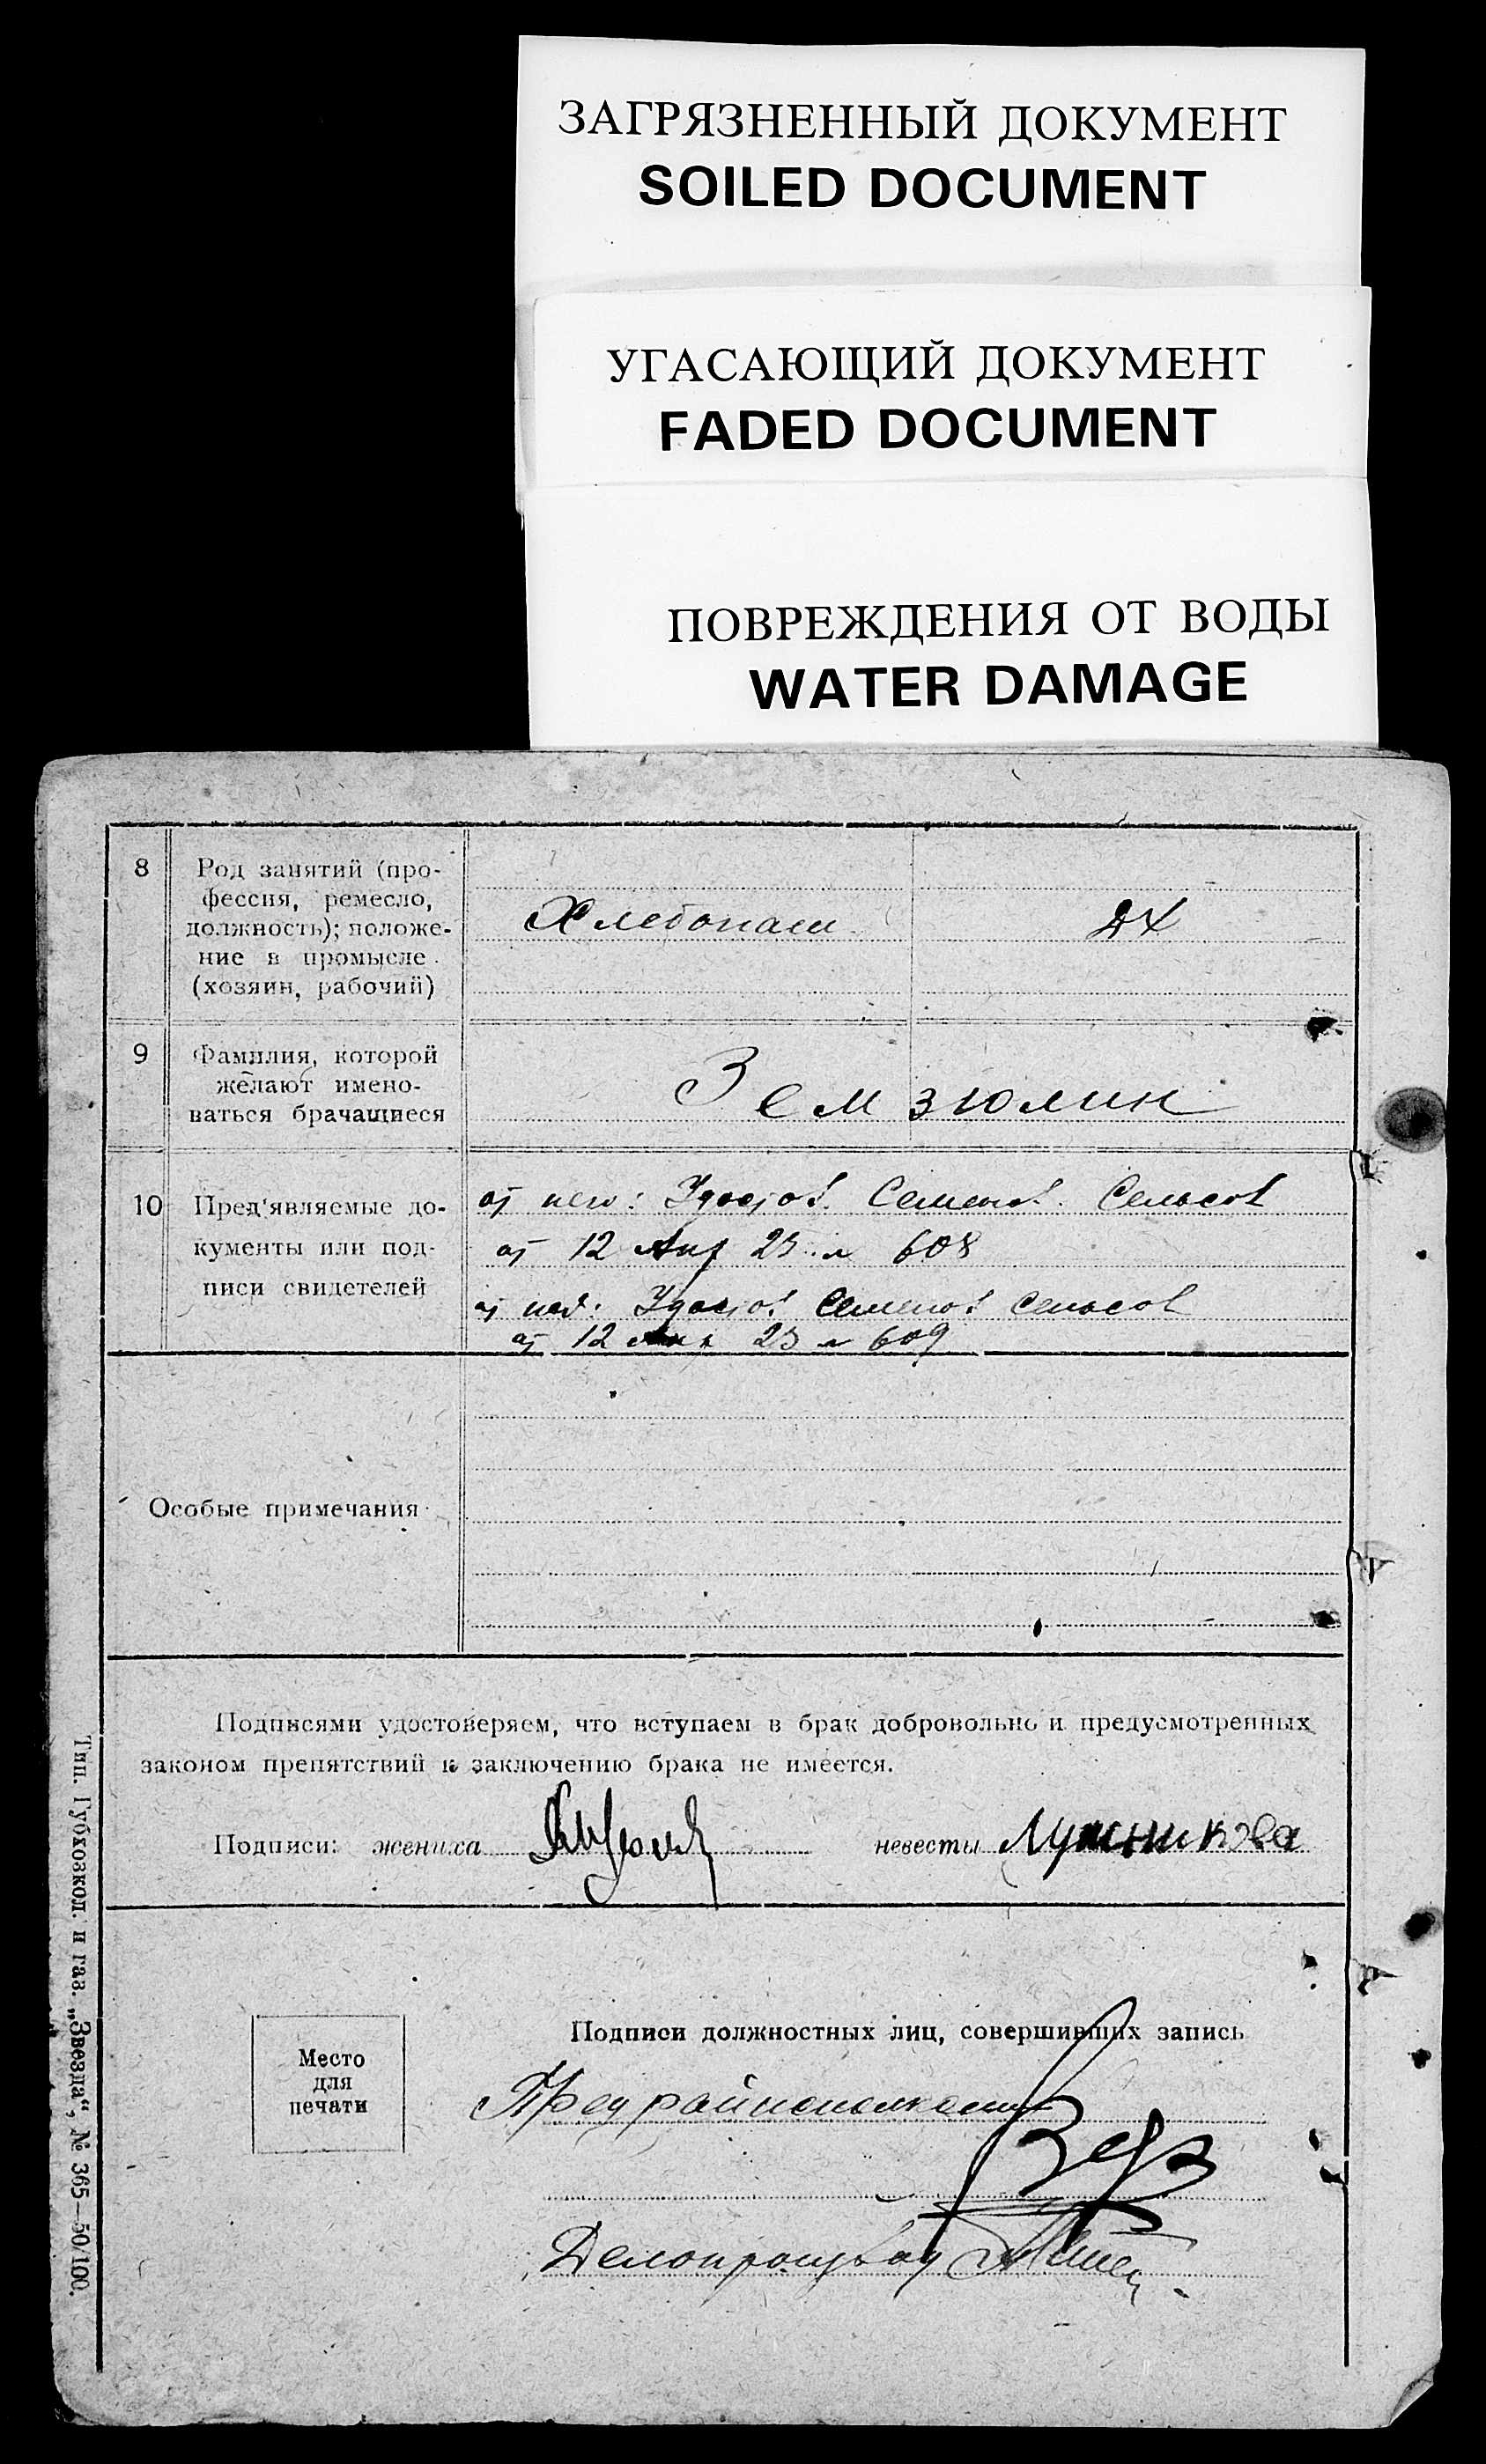 ЗАГРЯЗНЕННЫЙ ДОКУМЕНТ
SOILED DOCUMENT
УГАСАЮЩИЙ ДОКУМЕНТ
FADED DOCUMENT
ПОВРЕЖДЕНИЯ ОТ ВОДЫ
WATER DAMAGE
8
Род занятий (про-
фессия, ремесло,
должность); положе-
ние в промысле
(хозяин, рабочий)
Хлебопаш
дх
9
Фамилия, которой
желают имено-
ваться брачащиеся
Земзюлин
10
Пред'являемые до-
кументы или под-
писи свидетелей
от него: Удост Семенов. Сельсов
от 12 Апр 23 № 608
от нев: Удост Семенов Сельсов
от 12 Апр 23 № 609
Особые примечания
Подписями удостоверяем, что вступаем в брак добровольно и предусмотренных
законом препятствий к заключению брака не имеется.
Подписи: жениха
невесты Лушникова
Место
для
печати
Подписи должностных лиц, совершивших запись
Пред райисполкома
Делопроизвод
Тип. Губхозкол. и газ. „Звезда“, № 365—50/100.